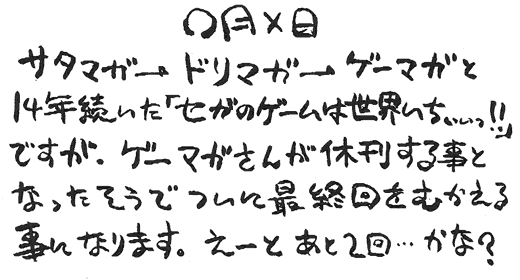 〇月×日
サタマガ→ドリマガ→ゲーマガと
14年続いた「セガのゲームは世界いちぃぃっ!!」
ですが、ゲーマガさんが休刊する事と
なったそうでついに最終回をむかえる
事になります。えーとあと2回…かな?